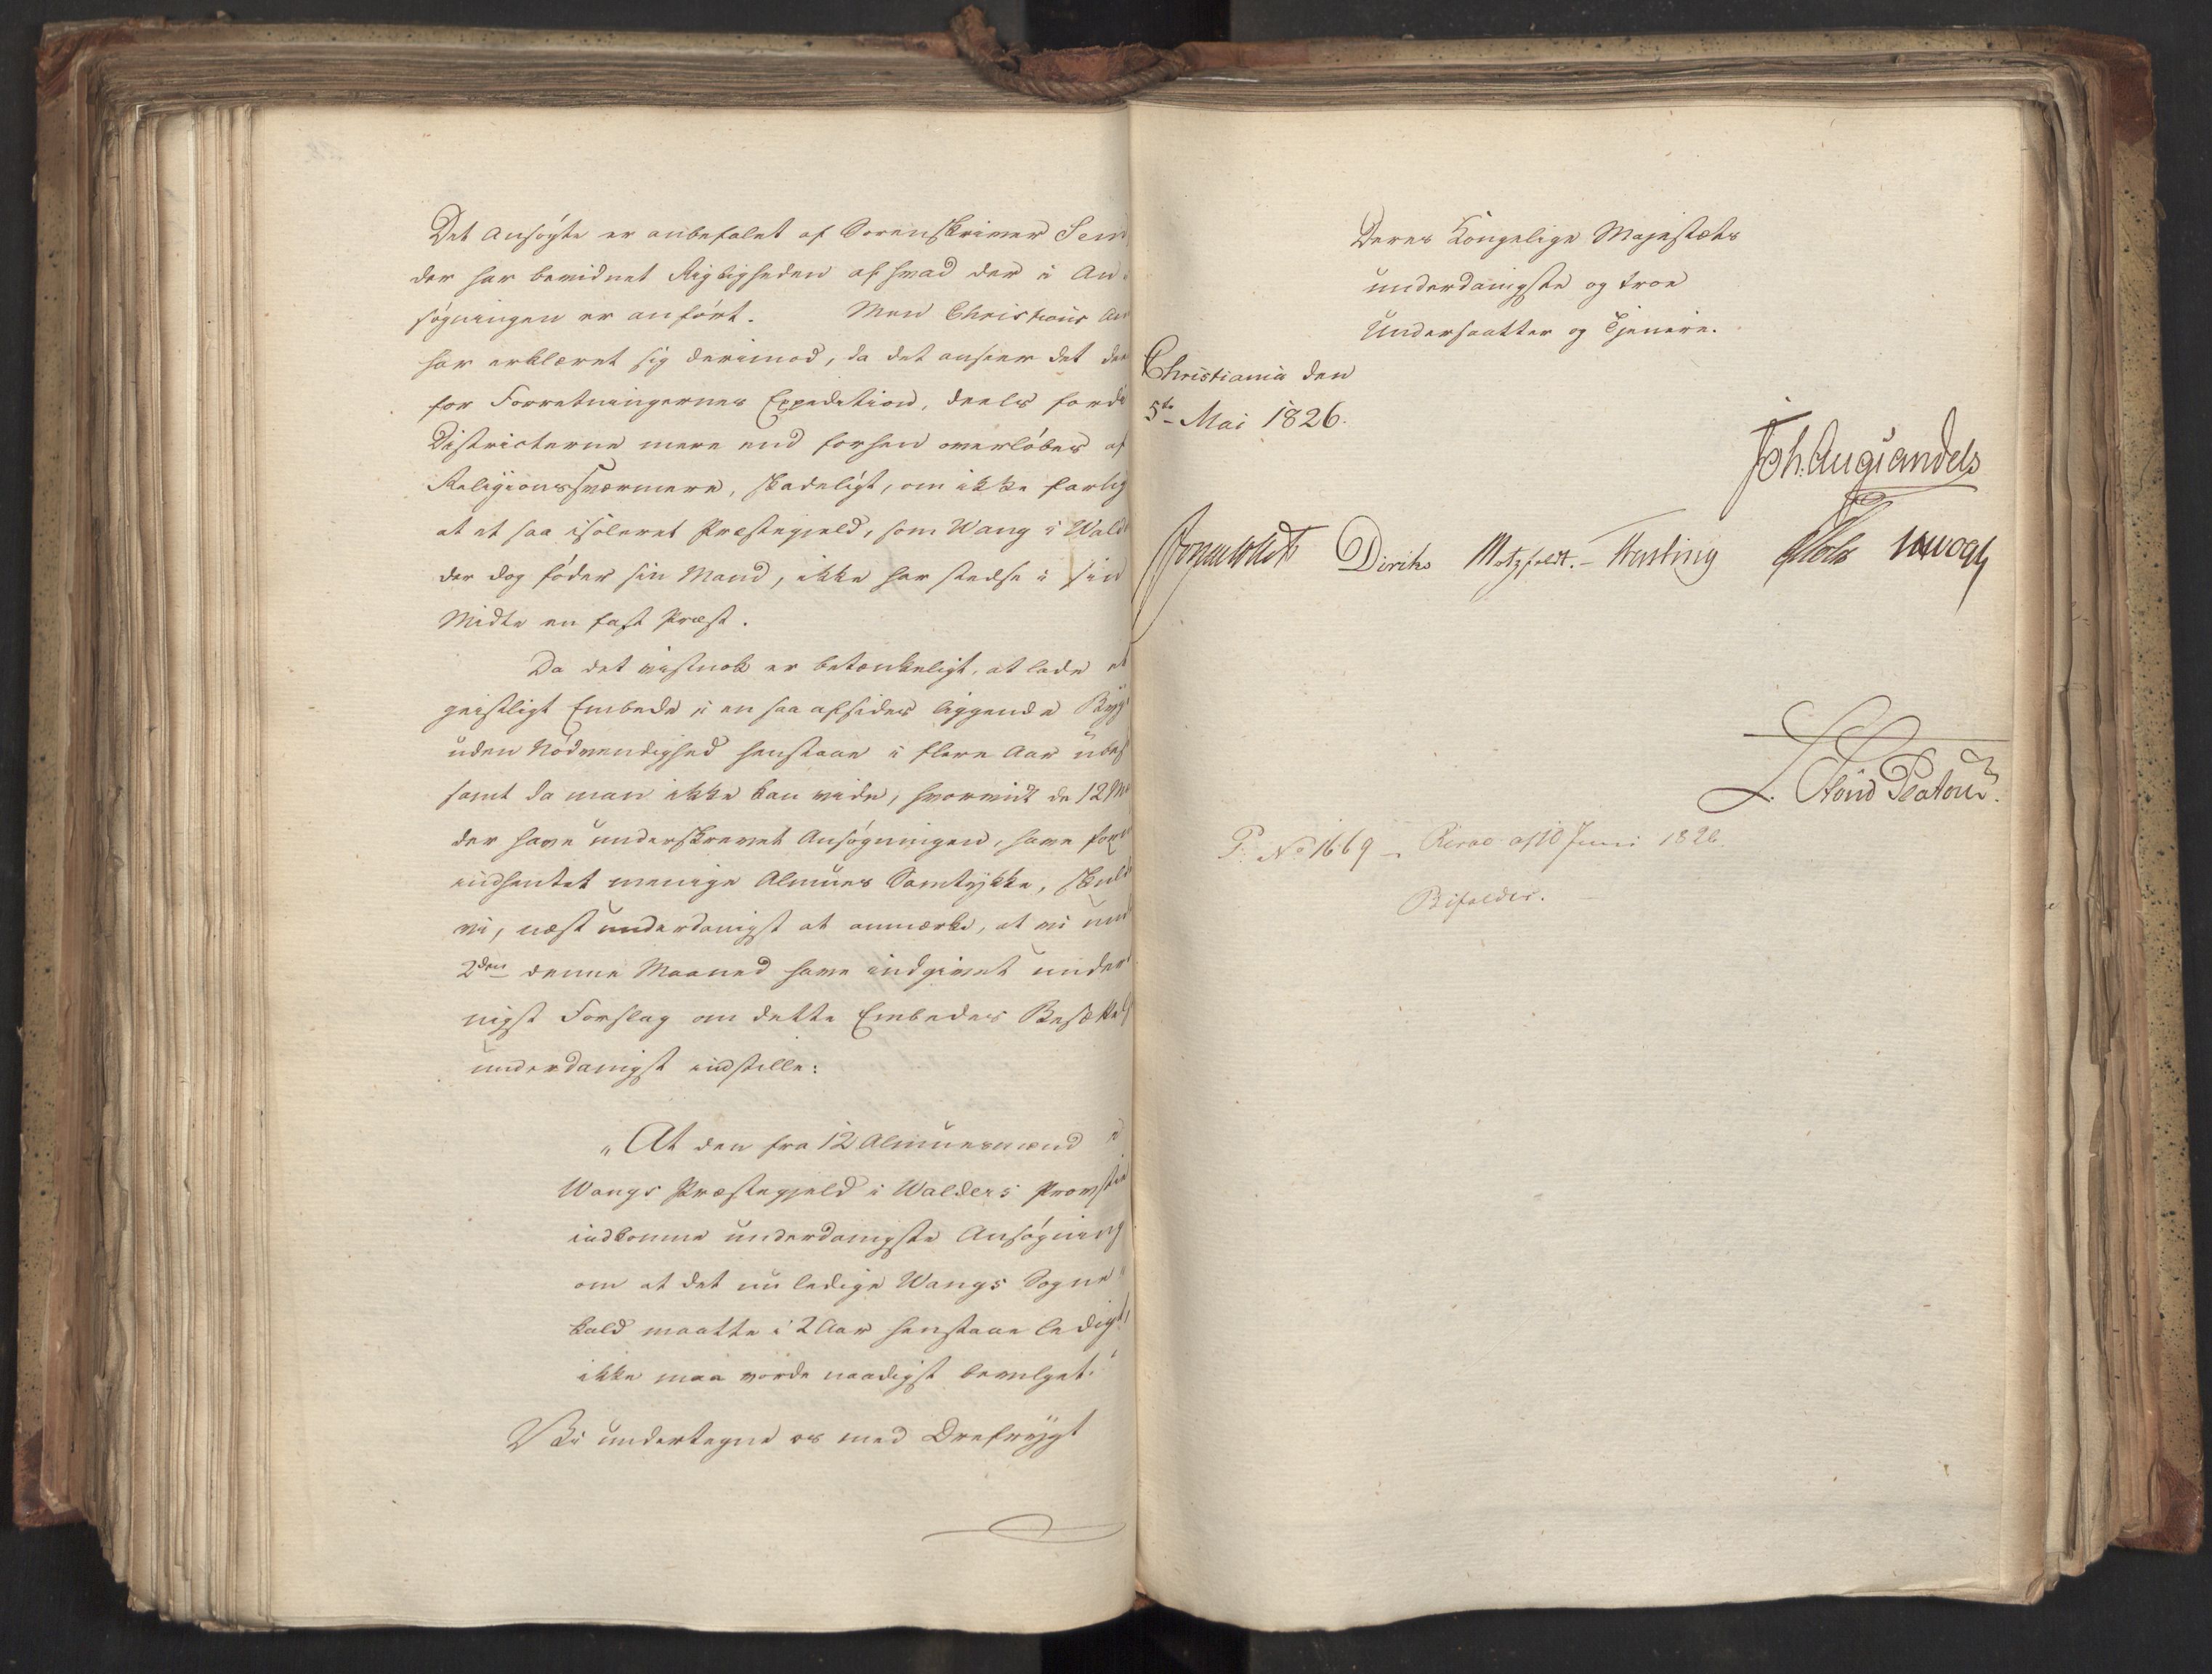 Det Ansøgte er anbefalet af Sorenskriver Sem
der har bevidnet Rigtigheden af hvad der i An-
søgningen er anført. Men Christians Am
har erklæret sig derimod, da det anseer det dee
for Forretningernes Expedition, deels fordi
Districterne mere end forhen overløbes af
Religionssværmere, skadeligt, om ikke farlig
at et saa isoleret Præstegjeld, som Wang i Wald
der dog føder sin Mand, ikke har stedse i sin
Midte en fast Præst.
Da det vistnok er betænkeligt, at lade et
geistligt Embede i en saa afsides liggende Byg
uden Nødvendighed henstaae i flere Aar ubes
samt da man ikke kan vide, hvorvidt de 12 M
der have underskrevet Ansøgningen, have
indhentet menige Almues Samtykke, skul
vi, næst underdanigst at anmærke, at vi und
2den denne Maaned have indgivet under
nigst Forslag om dette Embedes Besættels
underdanigst indstille:
"At den fra 12 Almuesmænd i
Wangs Præstegjeld i Walders Provstie
indkomne underdanigste Ansøgning
om at det nu ledige Wangs Sogne-
kald maatte i 2 Aar henstaae ledigt,
ikke maa vorde naadigst bevilget."
Vi undertegne os med Drefrygt
Deres Kongelige Majestæts
underdanigste og troe
Undersaatter og Tjenere.
Christiania den
5te Mai 1826.
Joh. Aug Sandels
Sommerhielm Diriks Motzfeldt. Fasting Holst JHVogt
L. Stoud Platou.
P: No 1669 - Resol: af 10 Juni 1826
Bifaldes.